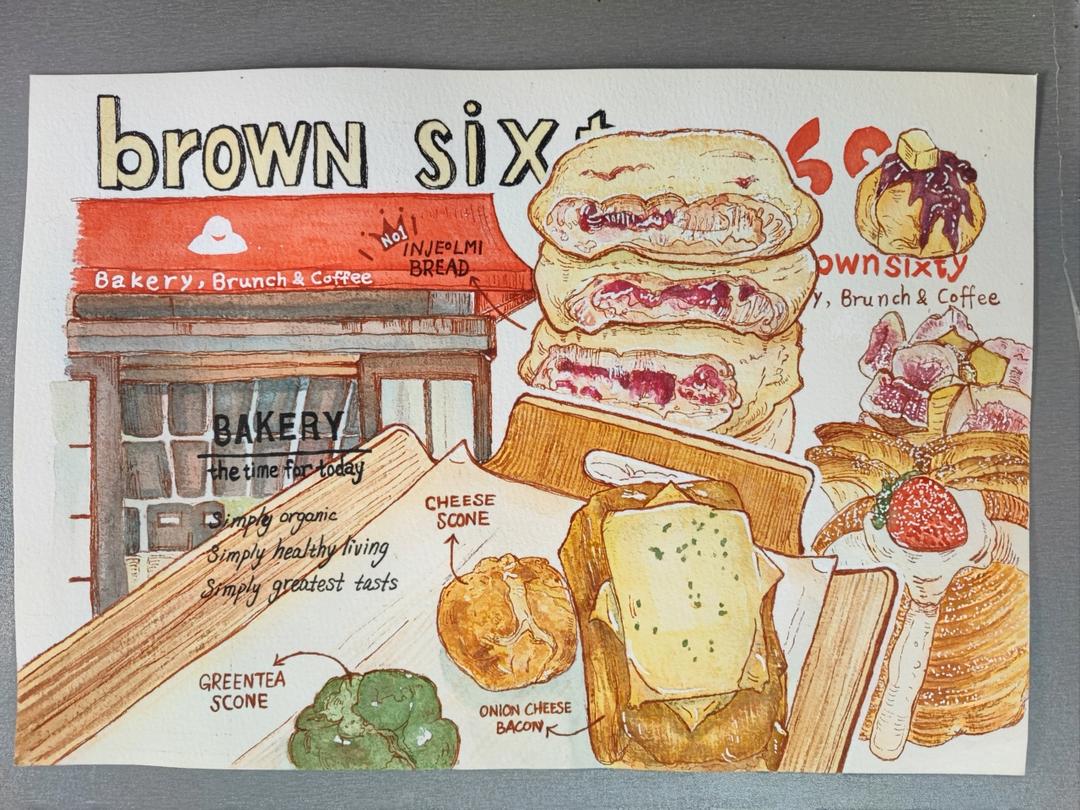 brown sixt
60
Bakery, Brunch & Coffee
No1
INJEOLMI
BREAD
ownsixty
y, Brunch & Coffee
BAKERY
the time for today
Simply organic
Simply healthy living
Simply greatest tasts
CHEESE
SCONE
GREENTEA
SCONE
ONION CHEESE
BACON